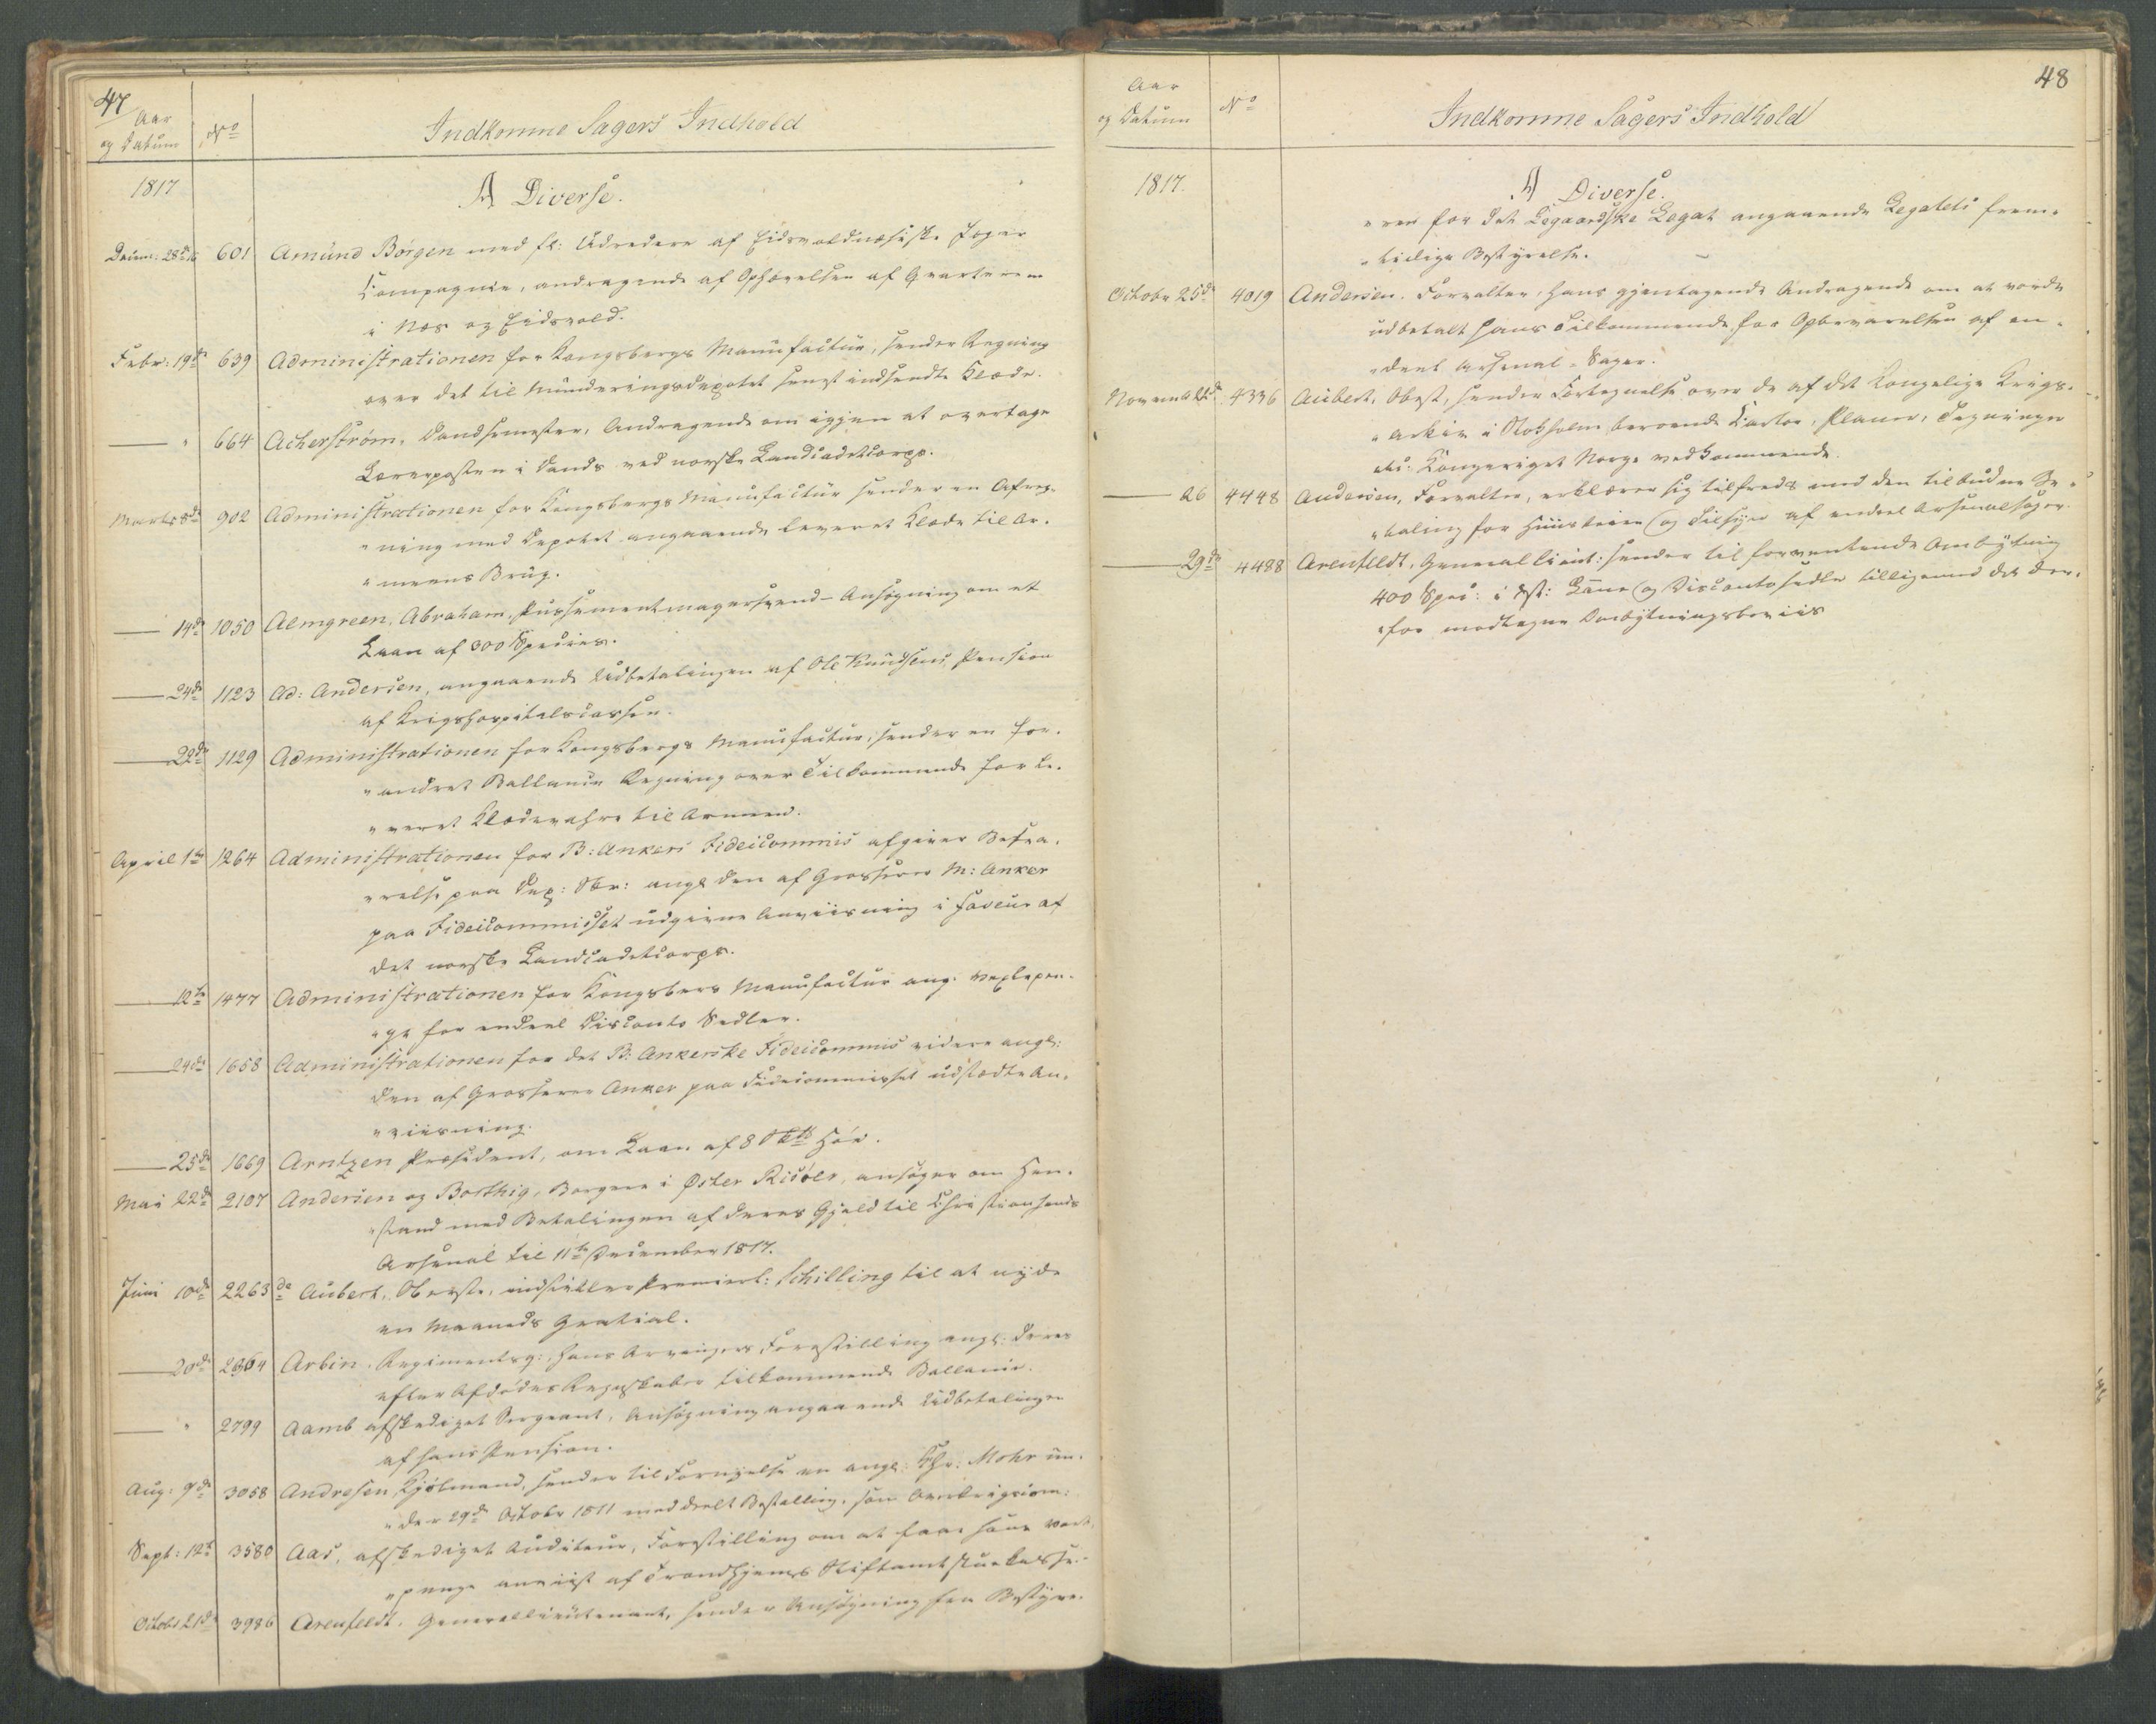 47
Aar
og Datum
No
Indkomne Sagers Indhold
1817
A Diverse.
Decem: 28de 16 601 Amund Börgen med fl: Udredere af Eidsvoldnæsiske Jæger
Compagnie, andragende af Ophævelsen af Qvarterne
i Næs og Eidsvold.
Febr: 19de 639 Administrationen for Kongsbergs Manufactur, sender Regning
over det til Munderingsdepotet senest indsendte Klæde.
— " 664 Acherström, Dandsemester, Andragende om igjen at overtage
Lærerposten i Dands ved norske Landcadetcorps.
Marts 8de 902 Administrationen for Kongsbergs Manufactur sender en Afreg-
"ning med Depotet angaaende leveret Klæde til Ar-
"meens Brug.
— 14de 1050 Almgreen, Abraham, Possementmagersvend - Ansögning om et
Laan af 300 Species.
— 24de 1123 Ad: Andersen, angaaende Udbetalingen af Ole Knudsens Pension
af Krigshospitalscassen.
— 22de 1129 Administrationen for Kongsbergs Manufactur, sender en for-
"andret Ballance Regning over Tilkommende for le-
"veret Klædevahre til Armeen.
April 1te 1264 Administrationen for B: Ankers Fideicommis afgiver Besva-
"relse paa Dep: Skr: angl den af Grosserer M: Anker
paa Fideicommisset udgivne Anviisning i faveur af
det norske Landcadetcorps.
— 12te 1477 Administrationen for Kongsbers Manufactur ang: Vexlepen-
"ge for endeel Disconto Sedler.
— 24de 1658 Administrationen for det B. Ankerske Fideicommis videre angl:
den af Grosserer Anker paa Fideicommisset udstædte An-
"viisning.
— 25de 1669 Arntzen Præsident, om Laan af 8 Skll Höe.
Mai 22de 2107 Andersen og Bothig, Borgere i Öster Risöer, ansöger om Hen-
"stand med Betalingen af deres Gjeld til Christiansands
Arsenal til 11te December 1817.
Juni 10de 2263 de Aubert, Oberste, indstiller Premierl: Schilling til at nyde
en Maaneds Gratial.
— 20de 2364 Arbin, Regimentsq:, hans Arvingers Forestilling angl: deres
efter Afdödes Regnskaber tilkommende Ballance.
— " 2799 Aamb afskediget Sergeant, Ansögning angaaende Udbetalingen
af hans Pension.
Aug: 9de 3058 Andresen Kjöbmand, sender til Fornyelse en angl: Chr: Mohr un-
"der 29de Octobr 1811 meddeelt Bestalling, som Overkrigscom:
Sept: 12te 3580 Aas, afskediget Auditeur, Forestilling om at faae sine Vart-
"penge anviist af Trondhjems Stiftamtstuekasse.-
Octobr 21de 3986 Arenfeldt, Generallieutenant, sender Ansögning fra Bestyre-
48
Aar
og Datum
No
Indkomne Sagers Indhold
1817.
A Diverse.
"ren for det Legaardske Legat angaaende Legatets frem-
"tidige Bestyrelse.
Octobr 25de 4019 Andersen, Forvalter, hans gjentagende Andragende om at vorde
udbetalt hans Tilkommende for Opbevarelsen af en-
"deel Arsenal-Sager.
Novemb 4336 Aubert, Oberst, sender Fortegnelse over de af det Kongelige Krigs-
"arkiv i Stokholm beroende Karter, Planer, Tegninger
etc: Kongeriget Norge vedkommende.
— 26 4448 Andersen, Forvalter, erklærer sig tilfreds med den tilbudne Be-
"taling for Huusleien og Tilsyn af endeel Arsenalsager.
— 29de 4488 Arenfeldt, Generallieut: sender til forventende Ombytning
400 Spec: i Laane og Discontosedler tilligemed det der-
"for modtagne Ombytningsbeviis